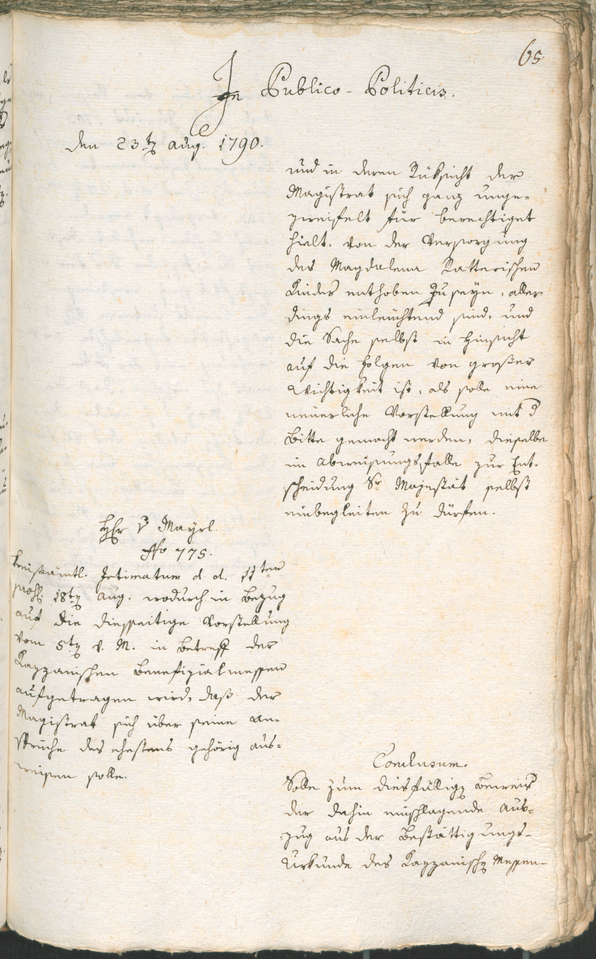 65
In Publico-Politicis.
den 23t aug. 1790.
und in deren Rüksicht der
Magistrat sich ganz unge-
zweifelt für berechtiget
hielt, von der Versorgung
des Magdalena Ratterischen
Kindes enthoben zu seyn, aller
dings einleuchtend sind, und
die Sache selbst in Hinsicht
auf die Folgen von großer
Wichtigkeit ist, als solle eine
neuerliche Vorstellung mit d
Bitte gemacht werden, dieselbe
im Abweisungsfalle zur Ent-
scheidung Sr Majestät selbst
einbegleiten zu dürfen.
Hr v Mayrl.
No 775.
Kreisämtl. Intimatum d. d. 11ten
18t Aug. wodurch in Bezug
auf die diesseitige Vorstellung
vom 5t v. M. in Betreff der
Kazzanischen Benefizialmessen
aufgetragen wird, daß der
Magistrat sich über seine An-
sprüche des ehestens gehörig aus-
weisen solle.
Conclusum.
Solle zum diesfälligen Beweis
der dahin einschlagende Aus-
zug aus der Bestättigungs-
Urkunde des Kazzanischen Messen-